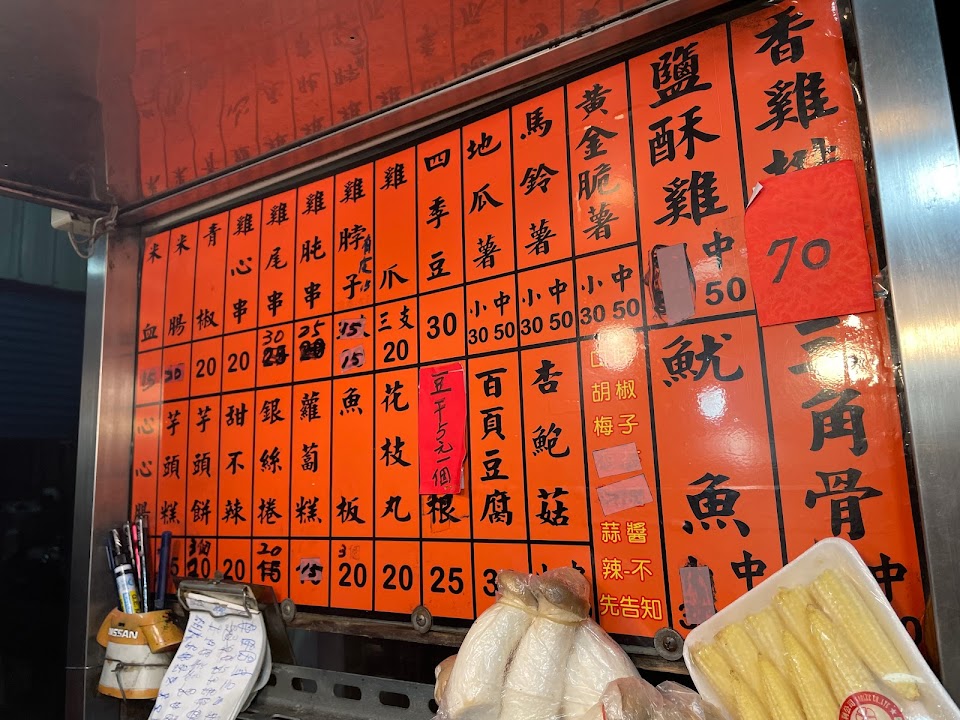 香雞排
70
鹽酥雞
中
50
黃金脆薯
小中
30 50
馬鈴薯
小中
30 50
地瓜薯
小中
30 50
四季豆
30
雞爪
三支
20
雞脖子
15
雞肫串
25
雞尾串
30
雞心串
20
青椒
20
米腸
米血
15
三角骨
中
魷魚
中
胡椒
梅子
蒜醬
辣-不
先告知
杏鮑菇
百頁豆腐
豆干5元一個
根
25
花枝丸
20
魚板
20
蘿蔔糕
15
銀絲捲
20
甜不辣
20
芋頭餅
芋頭糕
心
NISSAN